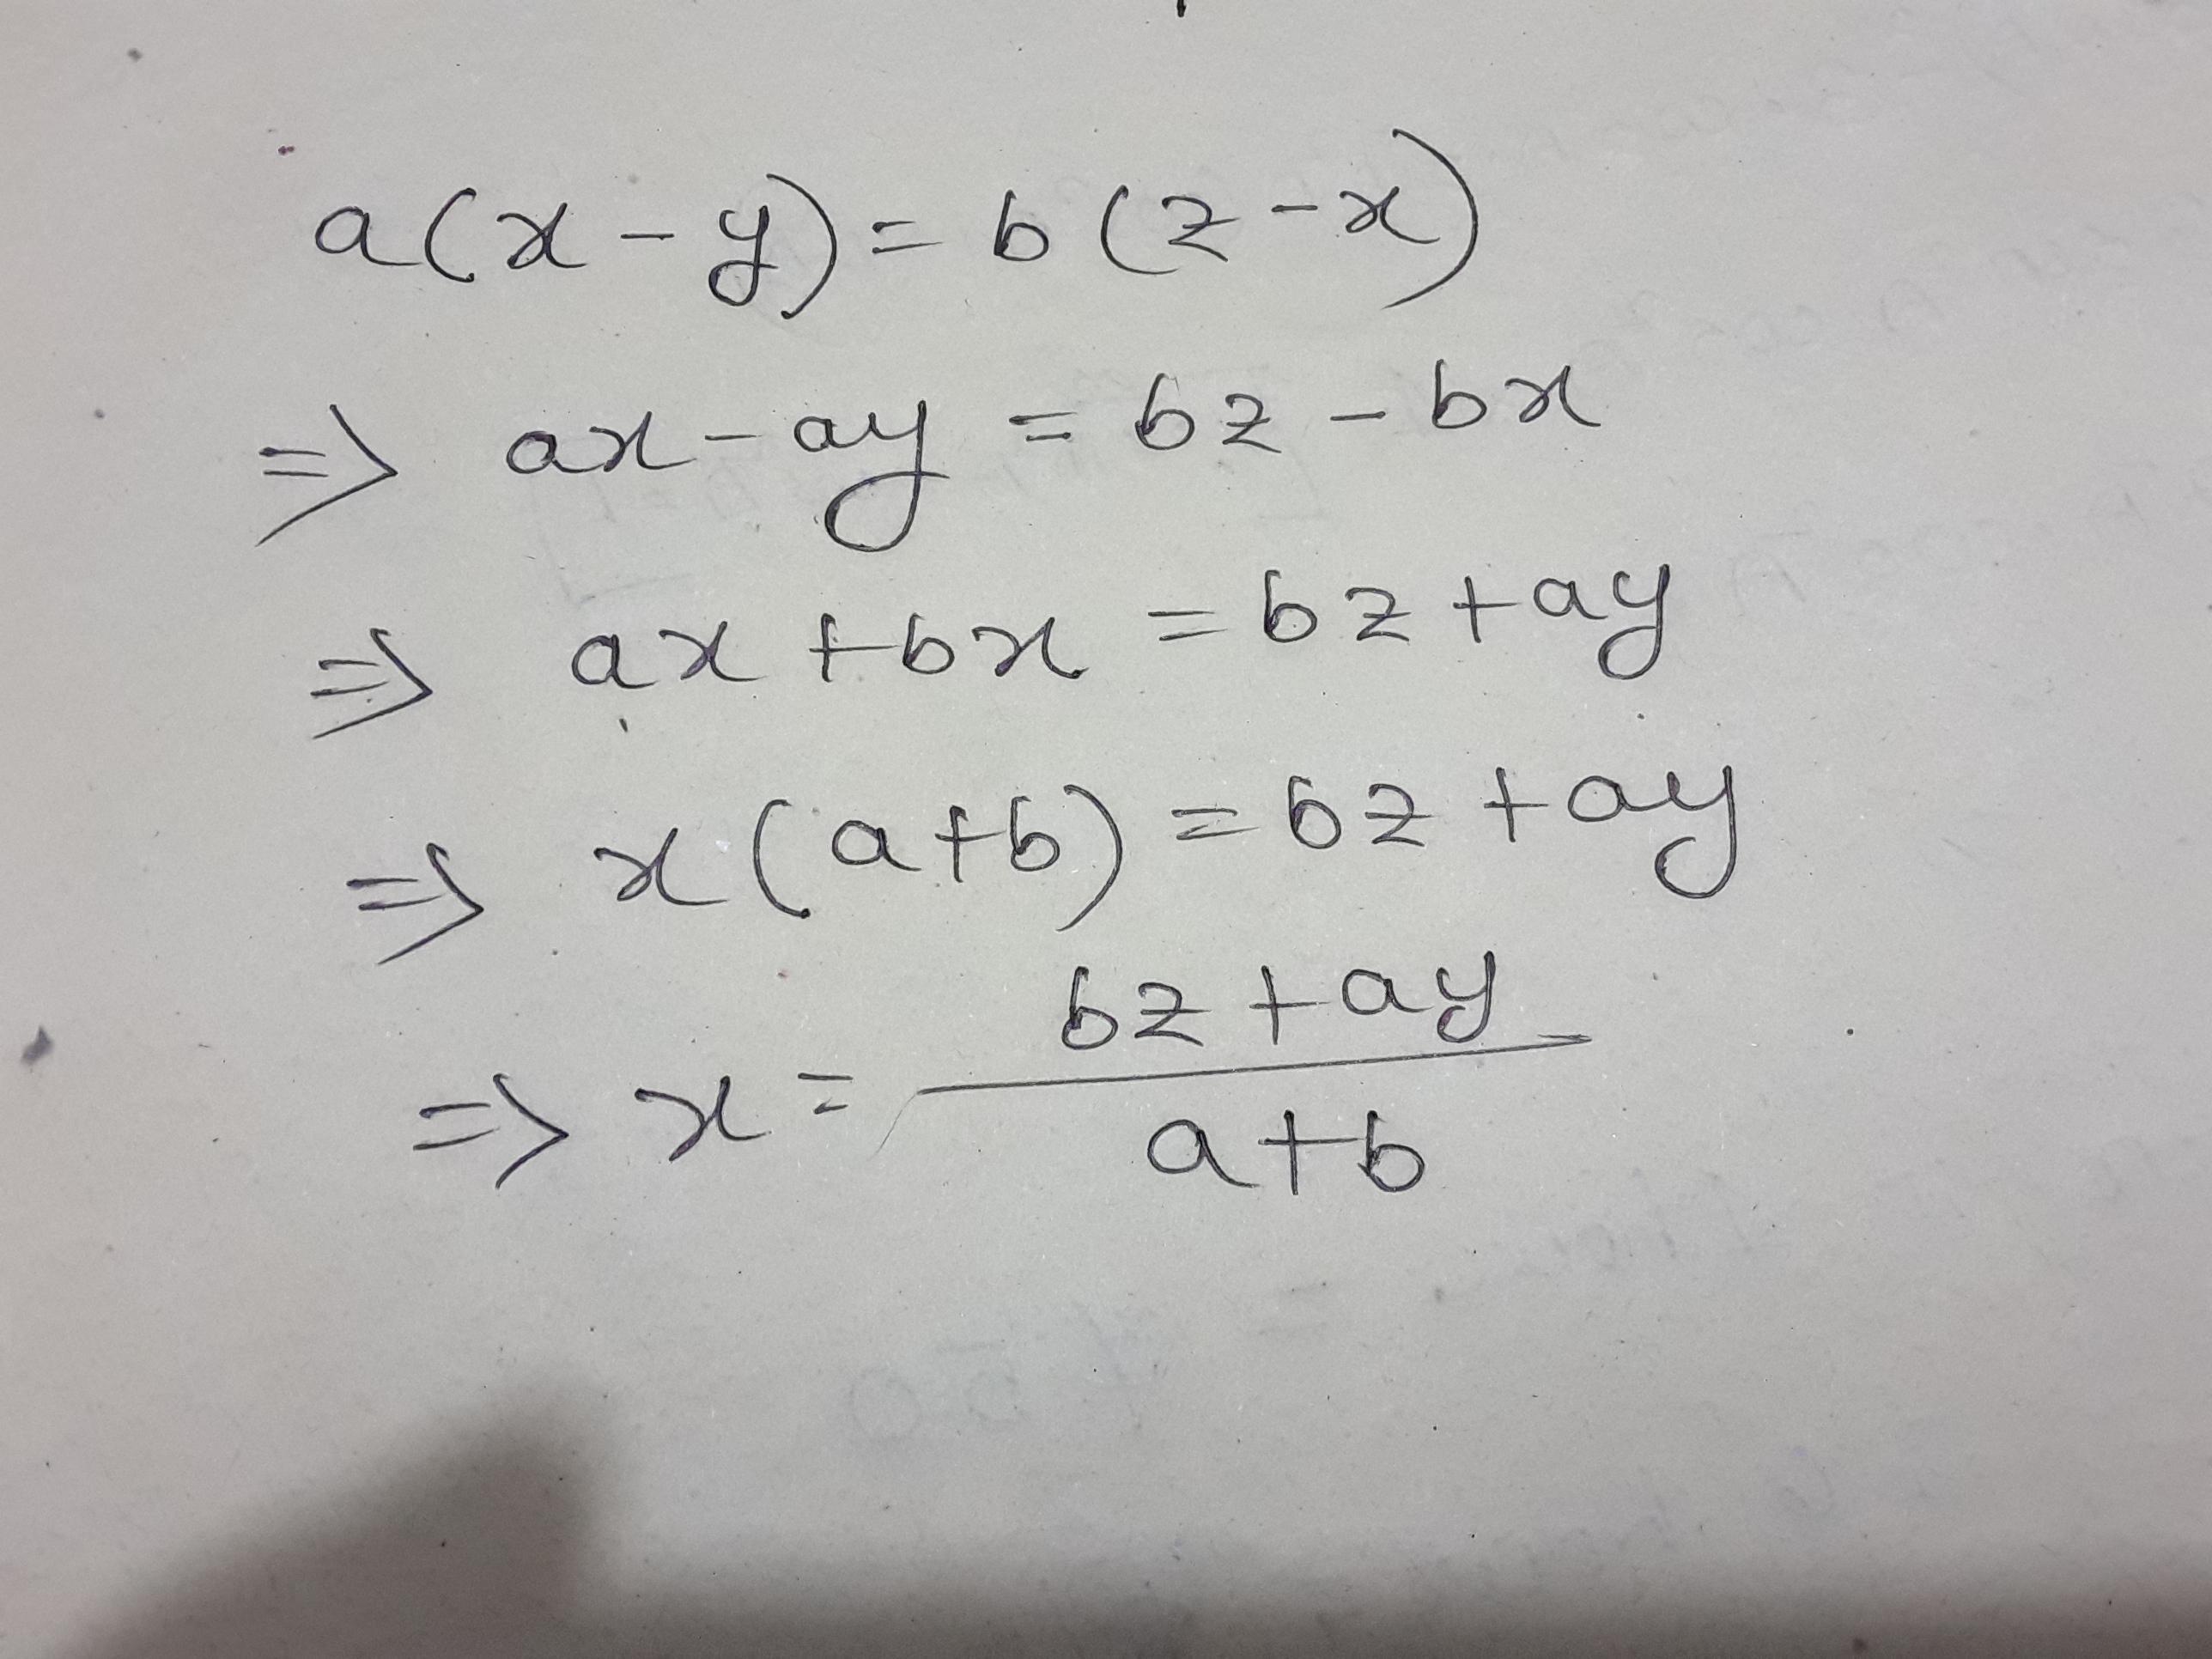 a(x-y) = b(z-x)
⇒ ax-ay = bz-bx
⇒ ax+bx = bz+ay
⇒ x(a+b) = bz+ay
⇒ x = \frac{bz+ay}{a+b}